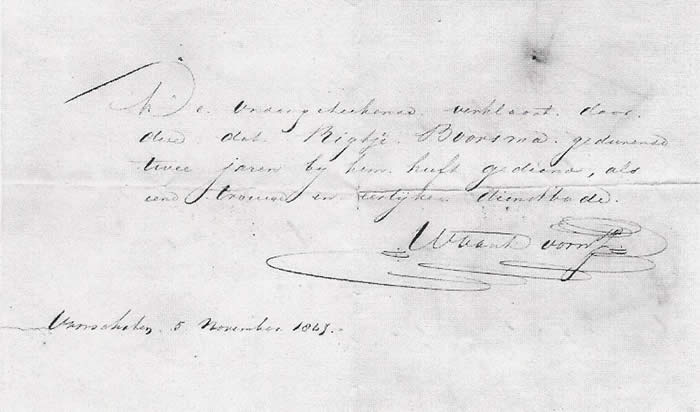 De Ondergeteekende verklaart door
deze dat Rigtje Boorsma gedurende
twee jaren by hem heeft gediend, als
eene trouwe en eerlyke dienstbode.
5 November